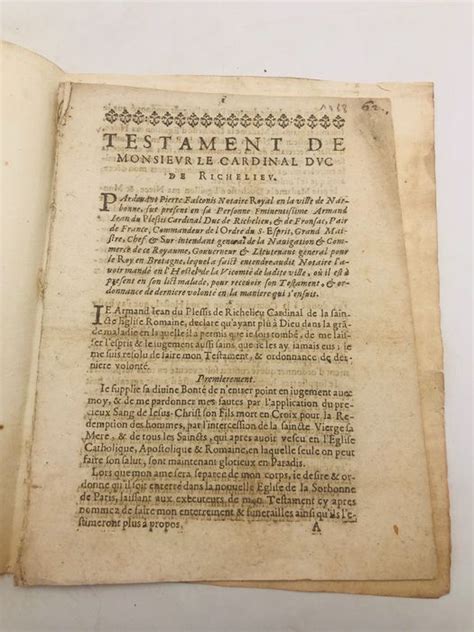 1868 62.
TESTAMENT DE
MONSIEVR LE CARDINAL DVC
DE RICHELIEV.
PArdeuant Pierre Falconis Notaire Royal en la ville de Nar-
bonne, fut present en sa Personne Eminentissime Armand
Iean du Plessis Cardinal Duc de Richelieu, & de Fronsac, Pair
de France, Commandeur de l'Ordre du S. Esprit, Grand Mai-
stre, Chef, & Sur-intendant general de la Nauigation & Com-
merce de ce Royaume, Gouuerneur & Lieutenant general pour
le Roy en Bretagne, lequel a faict entendre audit Notaire l'a-
uoir mandé en l'Hostel de la Vicomté de ladite ville, où il est à
present en son lict malade, pour receuoir son Testament, & or-
donnance de derniere volonté en la maniere qui s'ensuit.
IE Armand Iean du Plessis de Richelieu Cardinal de la sain-
cte Eglise Romaine, declare qu'ayant pleu à Dieu dans la grā-
de maladie en laquelle il a permis que ie sois tombé, de me lais-
ser l'esprit & le iugement aussi sains que ie les ay iamais eus, ie
me suis resolu de faire mon Testament, & ordonnance de der-
niere volonté.
Premierement.
Ie supplie sa diuine Bonté de n'entrer point en iugement auec
moy, & de me pardonner mes fautes par l'application du pre-
cieux Sang de Iesus-Christ son Fils mort en Croix pour la Re-
demption des hommes, par l'intercession de la saincte Vierge sa
Mere, & de tous les Saincts, qui apres auoir vescu en l'Eglise
Catholique, Apostolique & Romaine, en laquelle seule on peut
faire son salut, sont maintenant glorieux en Paradis.
Lors que mon ame sera separée de mon corps, ie desire & or-
donne qu'il soit enterré dans la nouuelle Eglise de la Sorbonne
de Paris, laissant aux executeurs de mon Testament cy apres
nommez de faire mon enterrement & funerailles ainsi qu'ils l'e-
stimeront plus à propos.
A